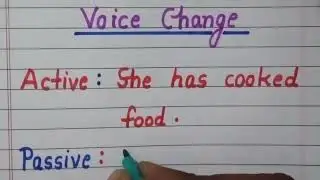 Voice Change
Active : She has cooked
food.
Passive :